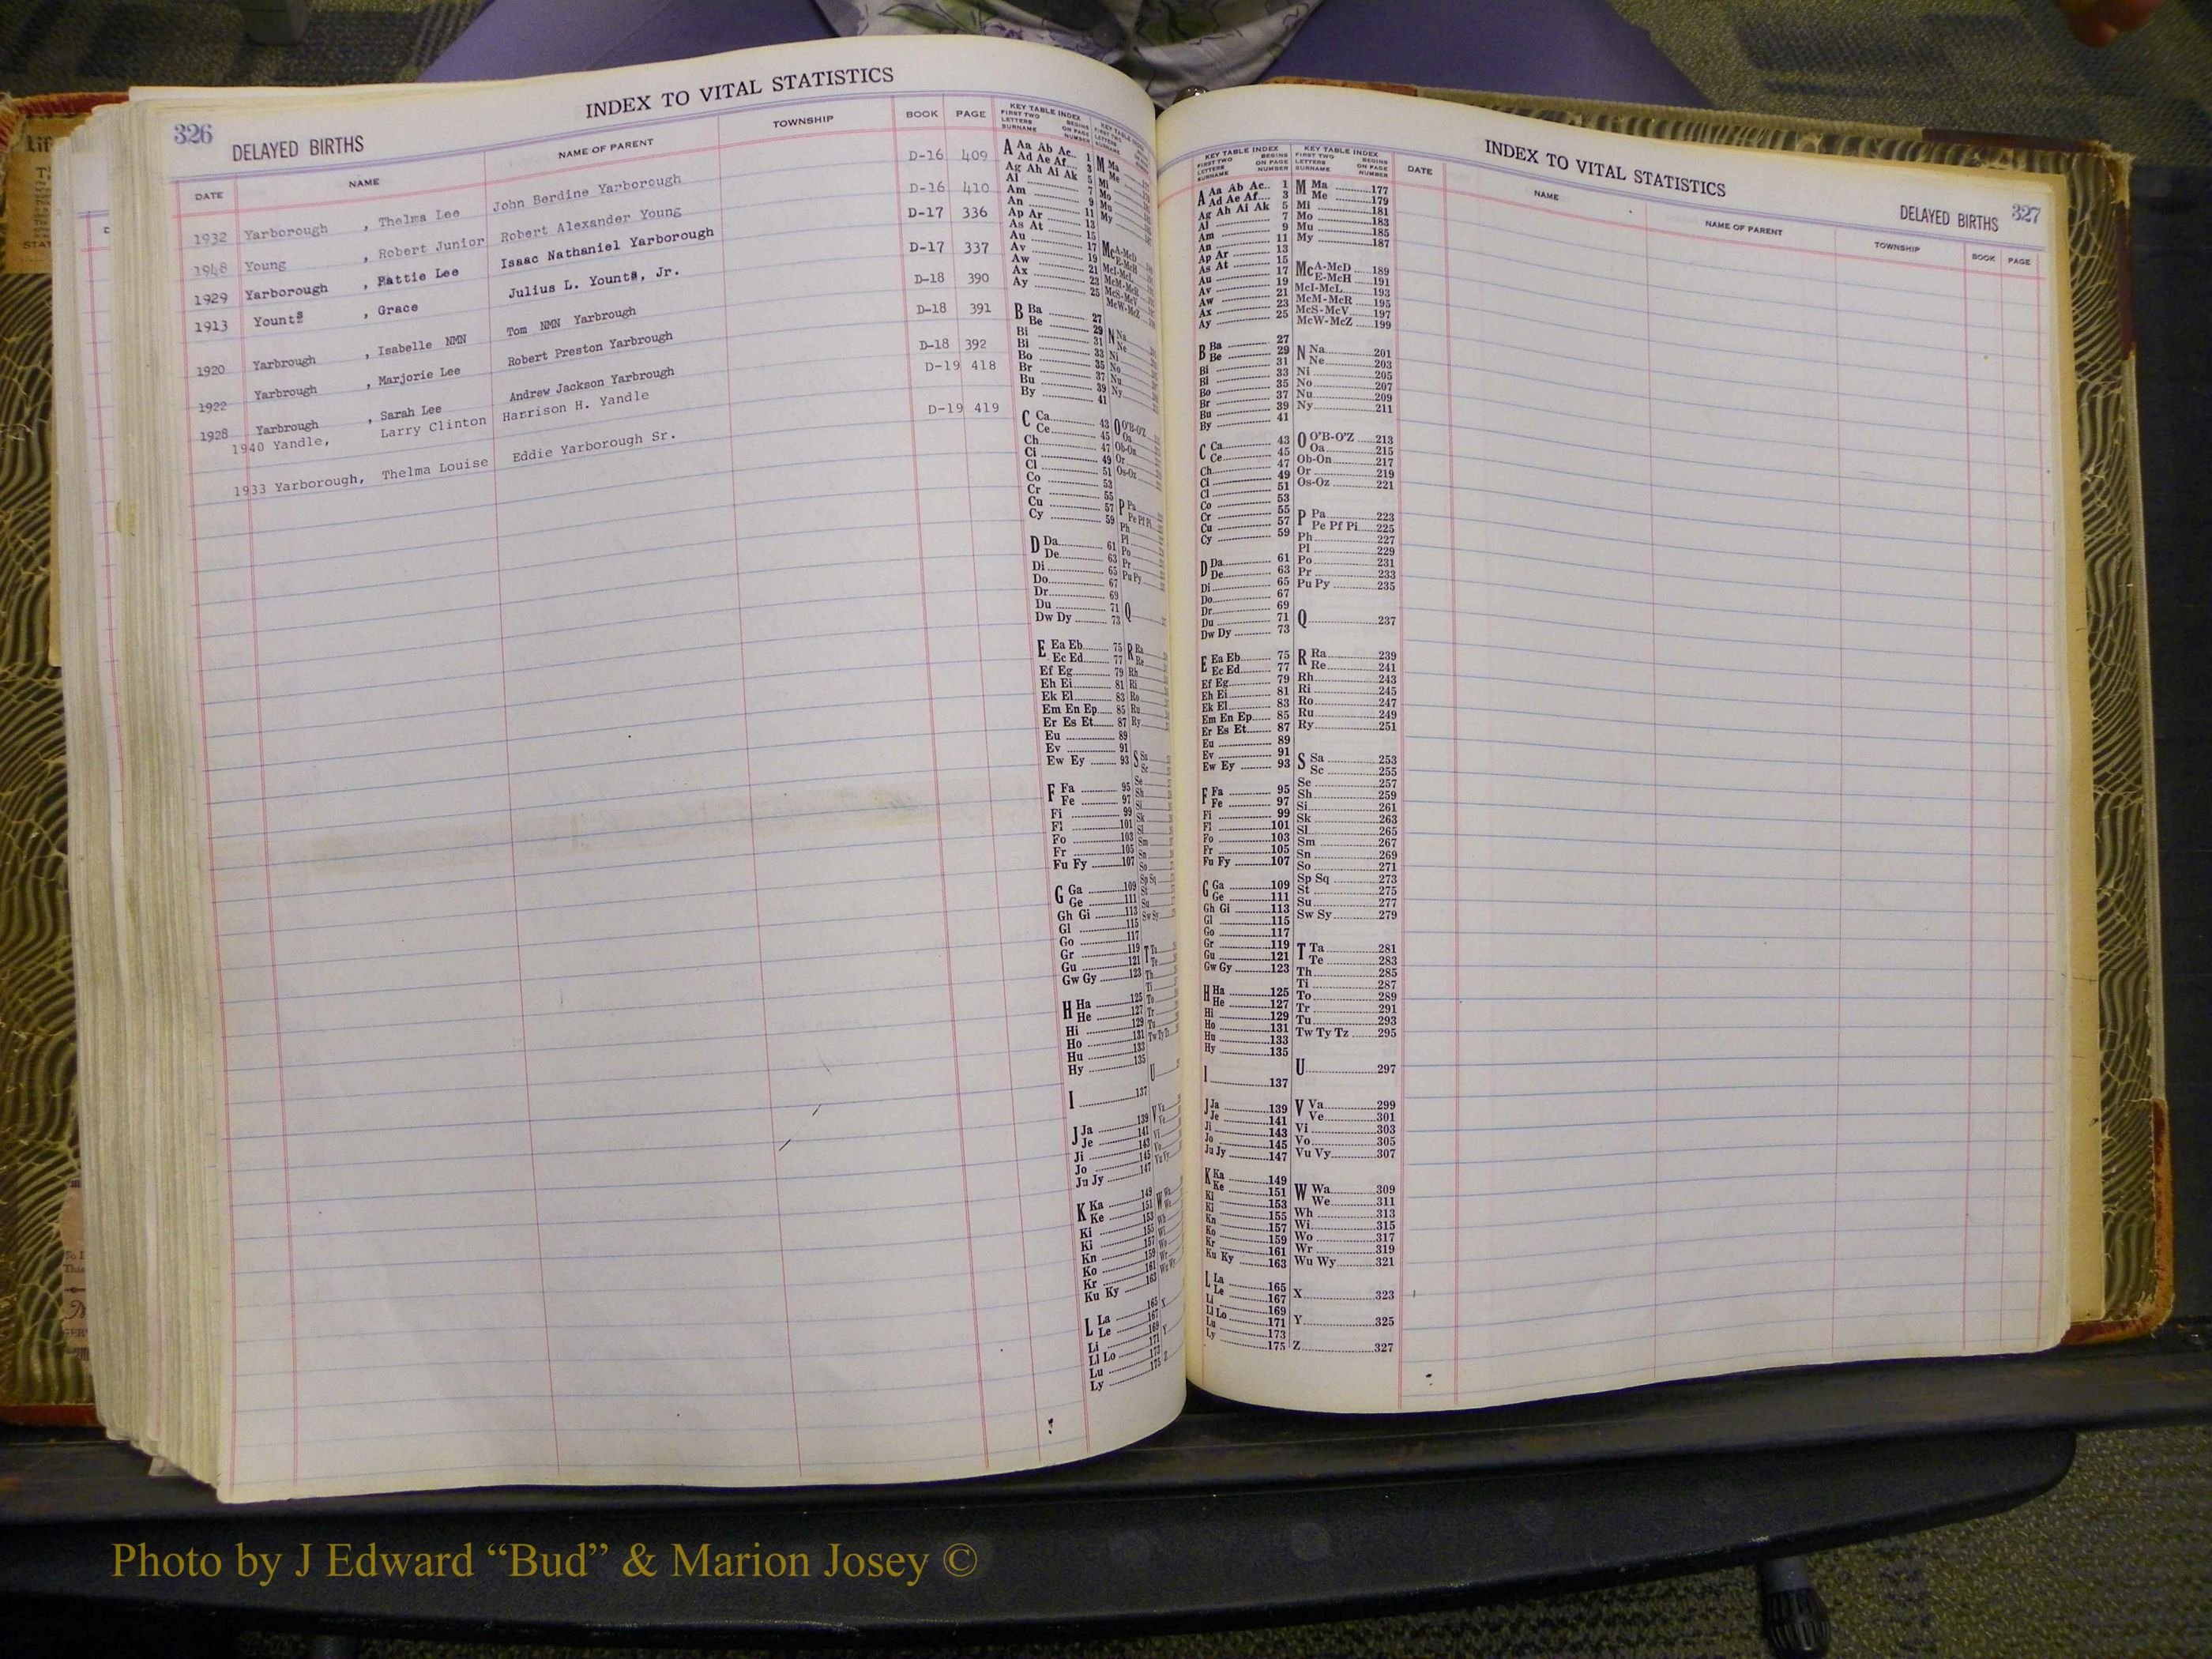 326
INDEX TO VITAL STATISTICS
DELAYED BIRTHS
DATE NAME NAME OF PARENT TOWNSHIP BOOK PAGE
1932 Yarborough , Thelma Lee John Berdine Yarborough D-16 409
1948 Young , Robert Junior Robert Alexander Young D-16 410
1929 Yarborough , Hattie Lee Isaac Nathaniel Yarborough D-17 336
1913 Younts , Grace Julius L. Younts, Jr. D-17 337
1920 Yarbrough , Isabelle NMN Tom NMN Yarbrough D-18 390
1922 Yarbrough , Marjorie Lee Robert Preston Yarbrough D-18 391
1928 Yarbrough , Sarah Lee Andrew Jackson Yarbrough D-18 392
1940 Yandle, Larry Clinton Harrison H. Yandle D-19 418
1933 Yarborough, Thelma Louise Eddie Yarborough Sr. D-19 419
INDEX TO VITAL STATISTICS
DELAYED BIRTHS 327
DATE NAME NAME OF PARENT TOWNSHIP BOOK PAGE
KEY TABLE INDEX
FIRST TWO LETTERS SURNAME BEGINS ON PAGE NUMBER
A Aa Ab Ac.. 1
Ad Ae Af.... 3
Ag Ah Ai Ak 5
Al 7
Am 9
An 11
Ap Ar 13
As At 15
Au 17
Av 19
Aw 21
Ax 23
Ay 25
B Ba 27
Be 29
Bi 31
Bl 33
Bo 35
Br 37
Bu 39
By 41
C Ca 43
Ce 45
Ch 47
Ci 49
Cl 51
Co 53
Cr 55
Cu 57
Cy 59
D Da 61
De 63
Di 65
Do 67
Dr 69
Du 71
Dw Dy 73
E Ea Eb 75
Ec Ed 77
Ef Eg 79
Eh Ei 81
Ek El 83
Em En Ep 85
Er Es Et 87
Eu 89
Ev 91
Ew Ey 93
F Fa 95
Fe 97
Fi 99
Fl 101
Fo 103
Fr 105
Fu Fy 107
G Ga 109
Ge 111
Gh Gi 113
Gl 115
Go 117
Gr 119
Gu 121
Gw Gy 123
H Ha 125
He 127
Hi 129
Ho 131
Hu 133
Hy 135
I 137
J Ja 139
Je 141
Ji 143
Jo 145
Ju Jy 147
K Ka 149
Ke 151
Ki 153
Kl 155
Kn 157
Ko 159
Kr 161
Ku Ky 163
L La 165
Le 167
Li 169
Ll Lo 171
Lu 173
Ly 175
KEY TABLE INDEX
FIRST TWO LETTERS SURNAME BEGINS ON PAGE NUMBER
M Ma 177
Me 179
Mi 181
Mo 183
Mu 185
My 187
McA-McD 189
E-McH 191
McI-McL 193
McM-McR 195
McS-McV 197
McW-McZ 199
N Na 201
Ne 203
Ni 205
No 207
Nu 209
Ny 211
O O'B-O'Z 213
Oa 215
Ob-On 217
Or 219
Os-Oz 221
P Pa 223
Pe Pf Pi 225
Ph 227
Pl 229
Po 231
Pr 233
Pu Py 235
Q 237
R Ra 239
Re 241
Rh 243
Ri 245
Ro 247
Ru 249
Ry 251
S Sa 253
Sc 255
Se 257
Sh 259
Si 261
Sk 263
Sl 265
Sm 267
Sn 269
So 271
Sp Sq 273
St 275
Su 277
Sw Sy 279
T Ta 281
Te 283
Th 285
Ti 287
To 289
Tr 291
Tu 293
Tw Ty Tz 295
U 297
V Va 299
Ve 301
Vi 303
Vo 305
Vu Vy 307
W Wa 309
We 311
Wh 313
Wi 315
Wo 317
Wr 319
Wu Wy 321
X 323
Y 325
Z 327
Photo by J Edward “Bud” & Marion Josey ©